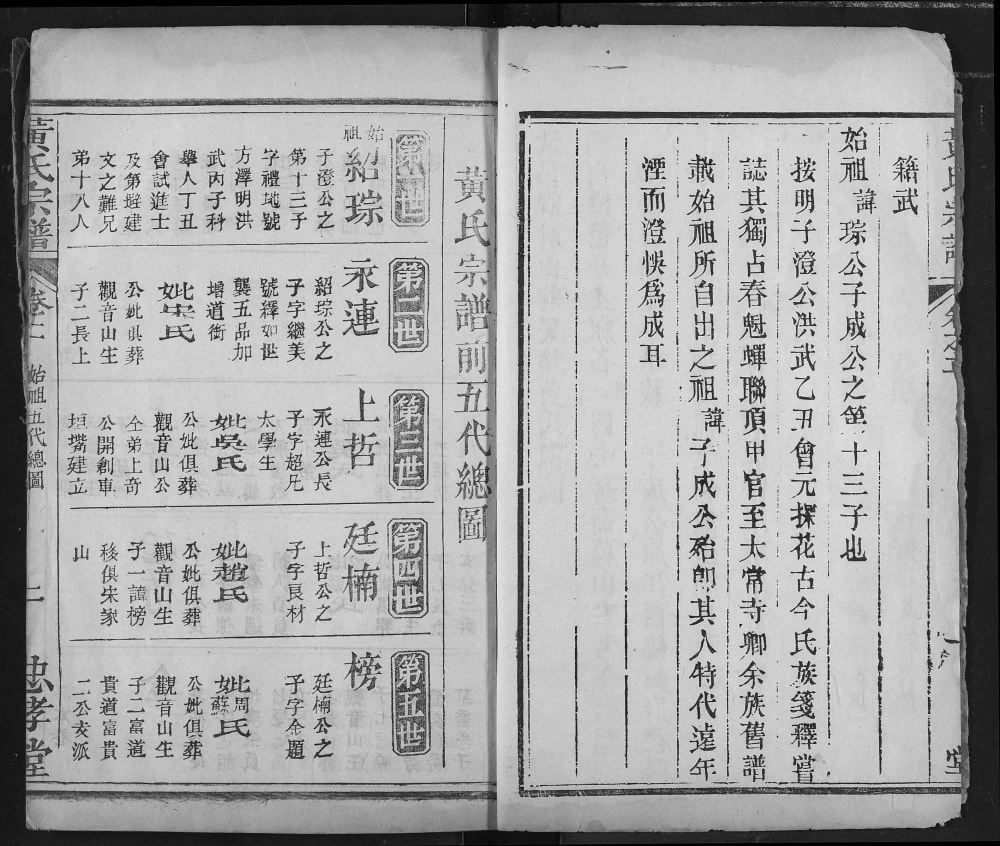 籍武
始祖諱琮公子成公之第十三子也
按明子澄公洪武乙丑會元探花古今氏族箋釋嘗
誌其獨占春魁蟬聯頂甲官至太常寺卿余族舊譜
載始祖所自出之祖諱子成公殆卽其人特代遠年
湮而澄悞爲成耳
堂
黃氏宗譜前五代總圖
第一世
始祖紹琮
子澄公之
第十三子
字禮地號
方澤明洪
武丙子科
舉人丁丑
會試進士
及第增建
文之難兄
弟十八人
第二世
永連
紹琮公之
子字繼美
號繹如世
襲五品加
增道銜
妣宋氏
公妣俱葬
觀音山生
子二長上
第三世
上哲
永連公長
子字超凡
太學生
妣吳氏
公妣俱葬
觀音山公
仝弟上奇
公開創車
垣嘴建立
第四世
廷楠
上哲公之
子字良材
妣趙氏
公妣俱葬
觀音山生
子一諱榜
移俱朱家
山
第五世
榜
廷楠公之
子字金題
妣周蘇氏
公妣俱葬
觀音山生
子二富道
貴道富貴
二公支派
黃氏宗譜
卷二
始祖五代總圖
二
忠孝堂